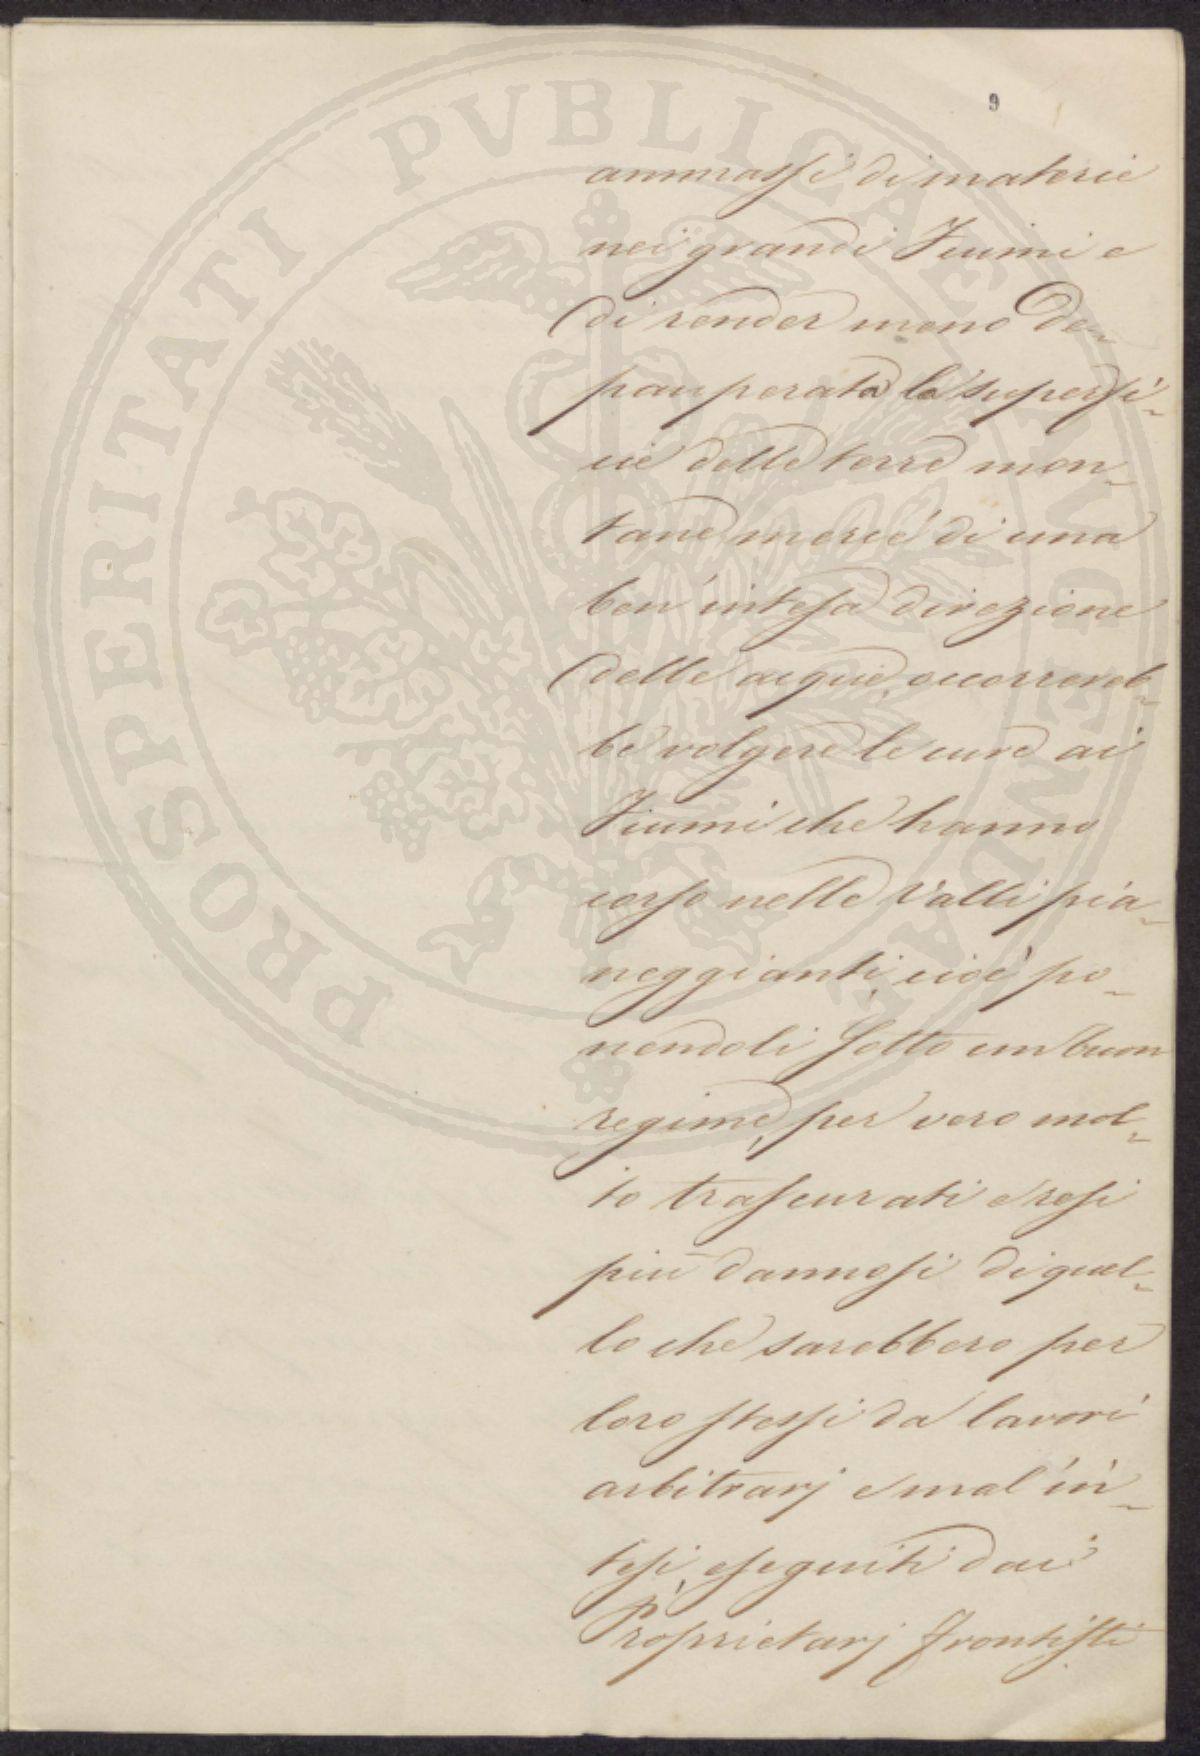 PROSPERITATI PVBLICAE AVGENDAE
9
ammassi di materie
nei grandi Fiumi e
di render meno de-
pauperata la superfi-
cie delle terre mon-
tane mercé di una
ben intesa direzione
delle acque, occorrereb-
be volgere le cure ai
Fiumi che hanno
corso nelle Valli pia-
neggianti, cioè po-
nendoli sotto un buon
regime, per vero mol-
to trascurati e resi
più dannosi di quel-
lo che sarebbero per
loro stessi da lavori
arbitrarj e mal in-
tesi, eseguiti dai
Proprietarj frontisti